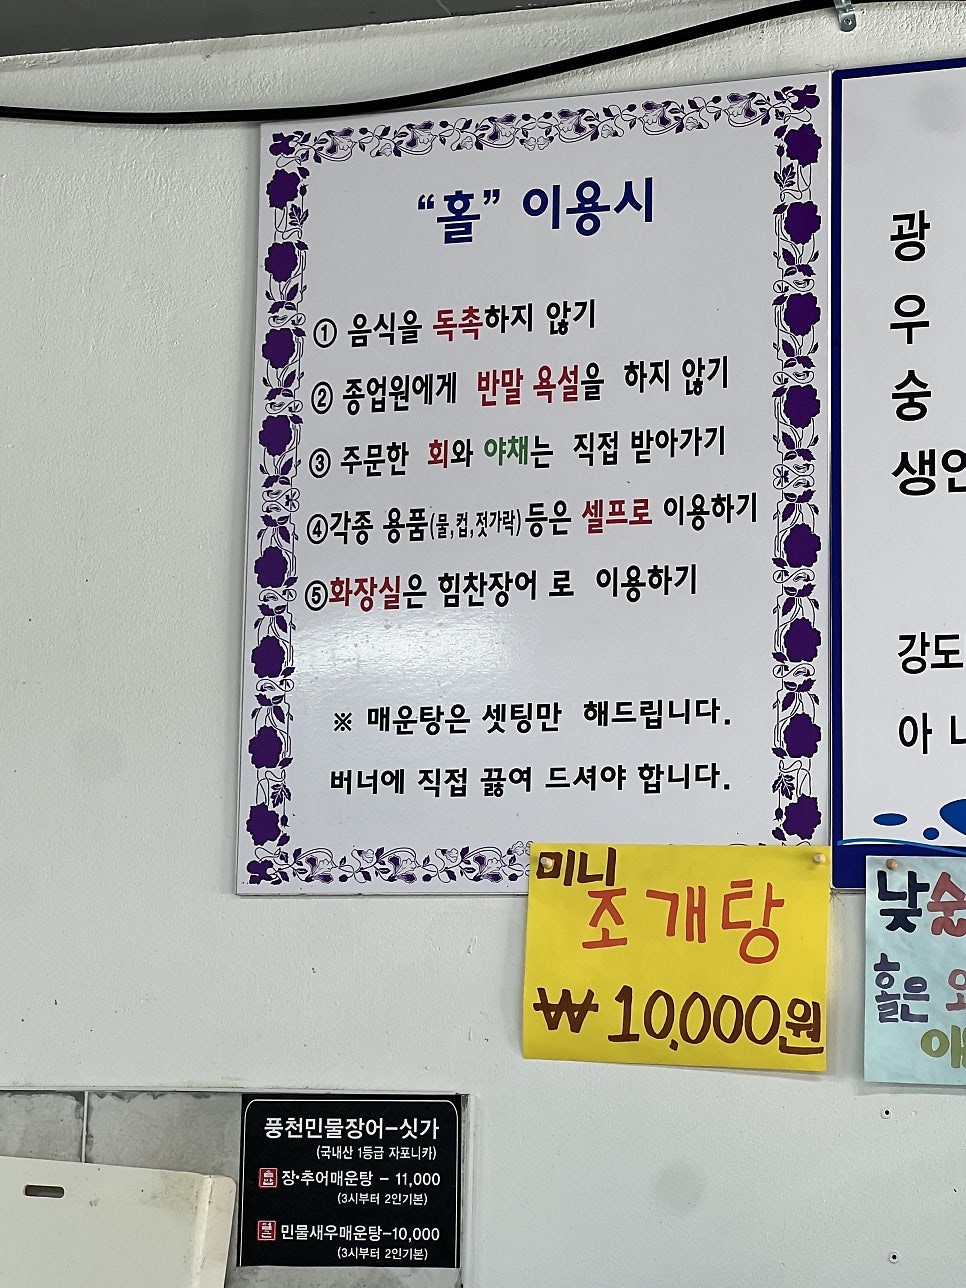 “홀” 이용시
① 음식을 독촉하지 않기
② 종업원에게 반말 욕설을 하지 않기
③ 주문한 회와 야채는 직접 받아가기
④각종 용품(물,컵,젓가락)등은 셀프로 이용하기
⑤화장실은 힘찬장어 로 이용하기
※ 매운탕은 셋팅만 해드립니다.
버너에 직접 끓여 드셔야 합니다.
미니
조개탕
₩10,000원
광
우
숭
강도
아
낮
홀은
풍천민물장어-싯가
(국내산 1등급 자포니카)
장·추어매운탕 - 11,000
(3시부터 2인기본)
민물새우매운탕-10,000
(3시부터 2인기본)